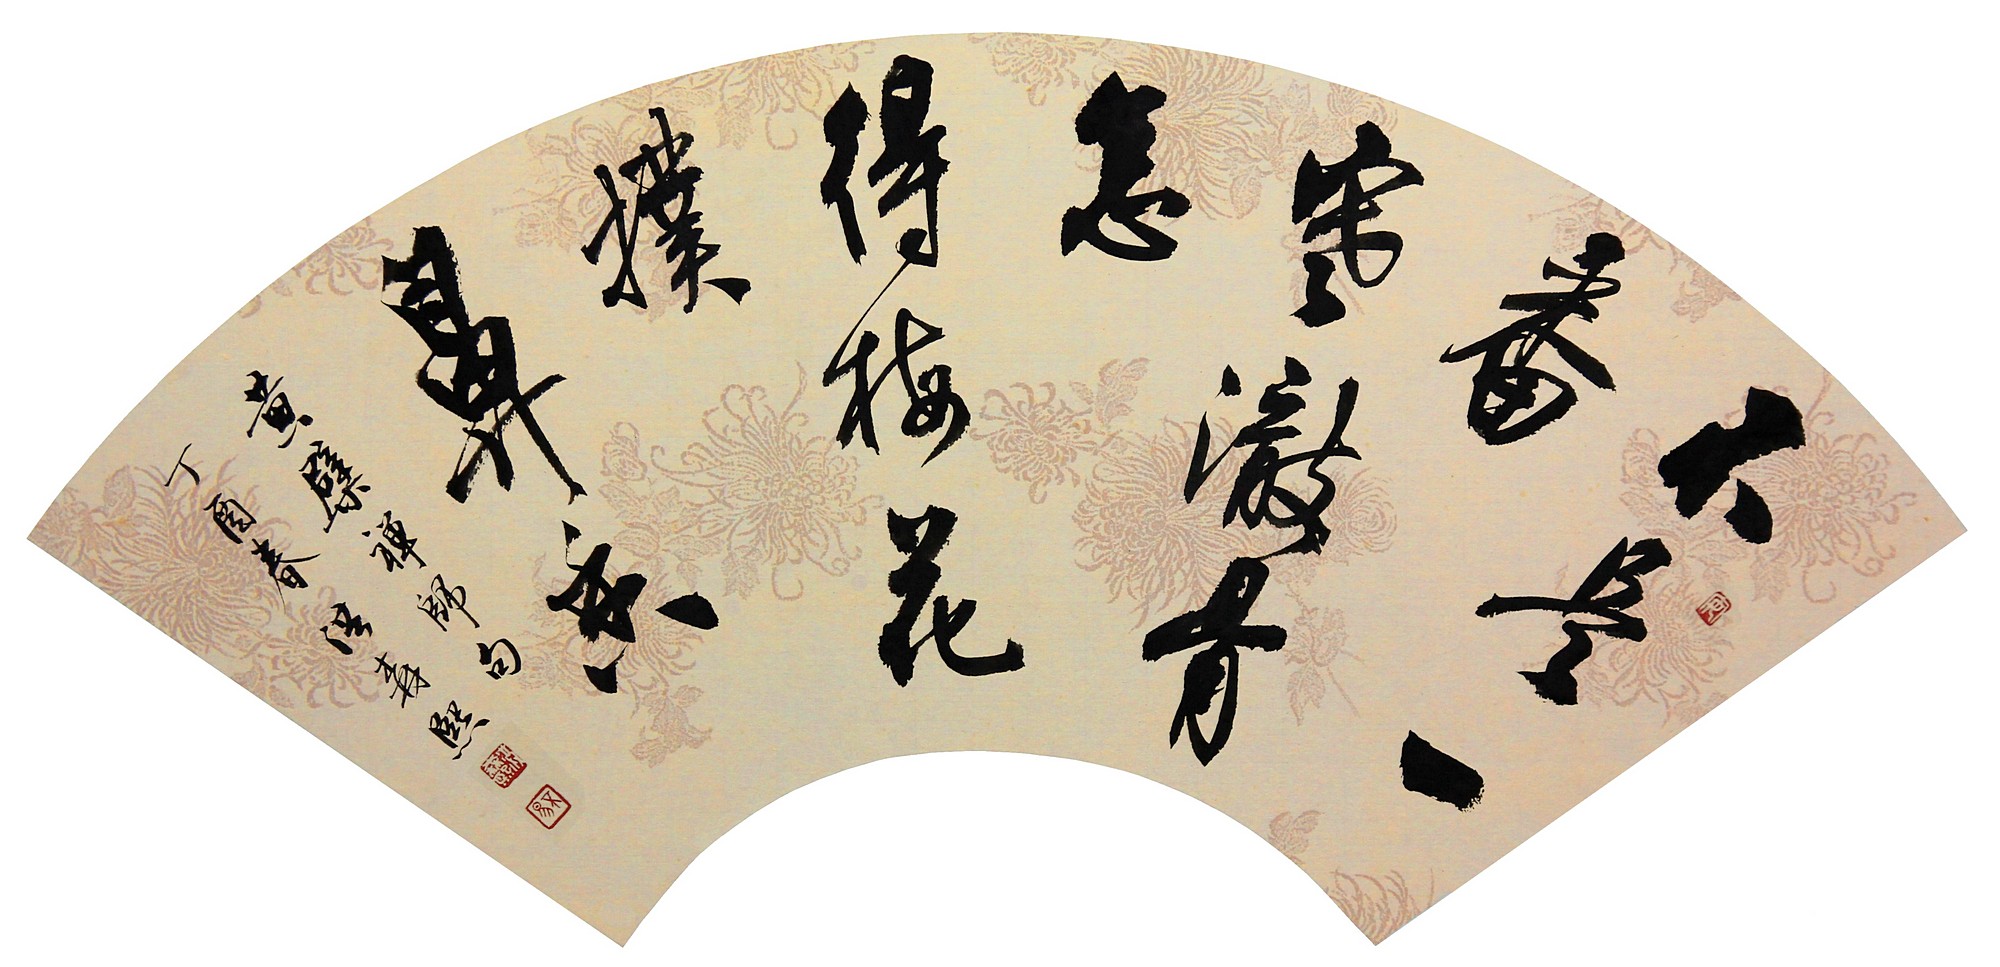 不是一
番
寒澈骨
怎
得梅花
撲
鼻香
黄檗禅師句
丁酉春 洪壽熙